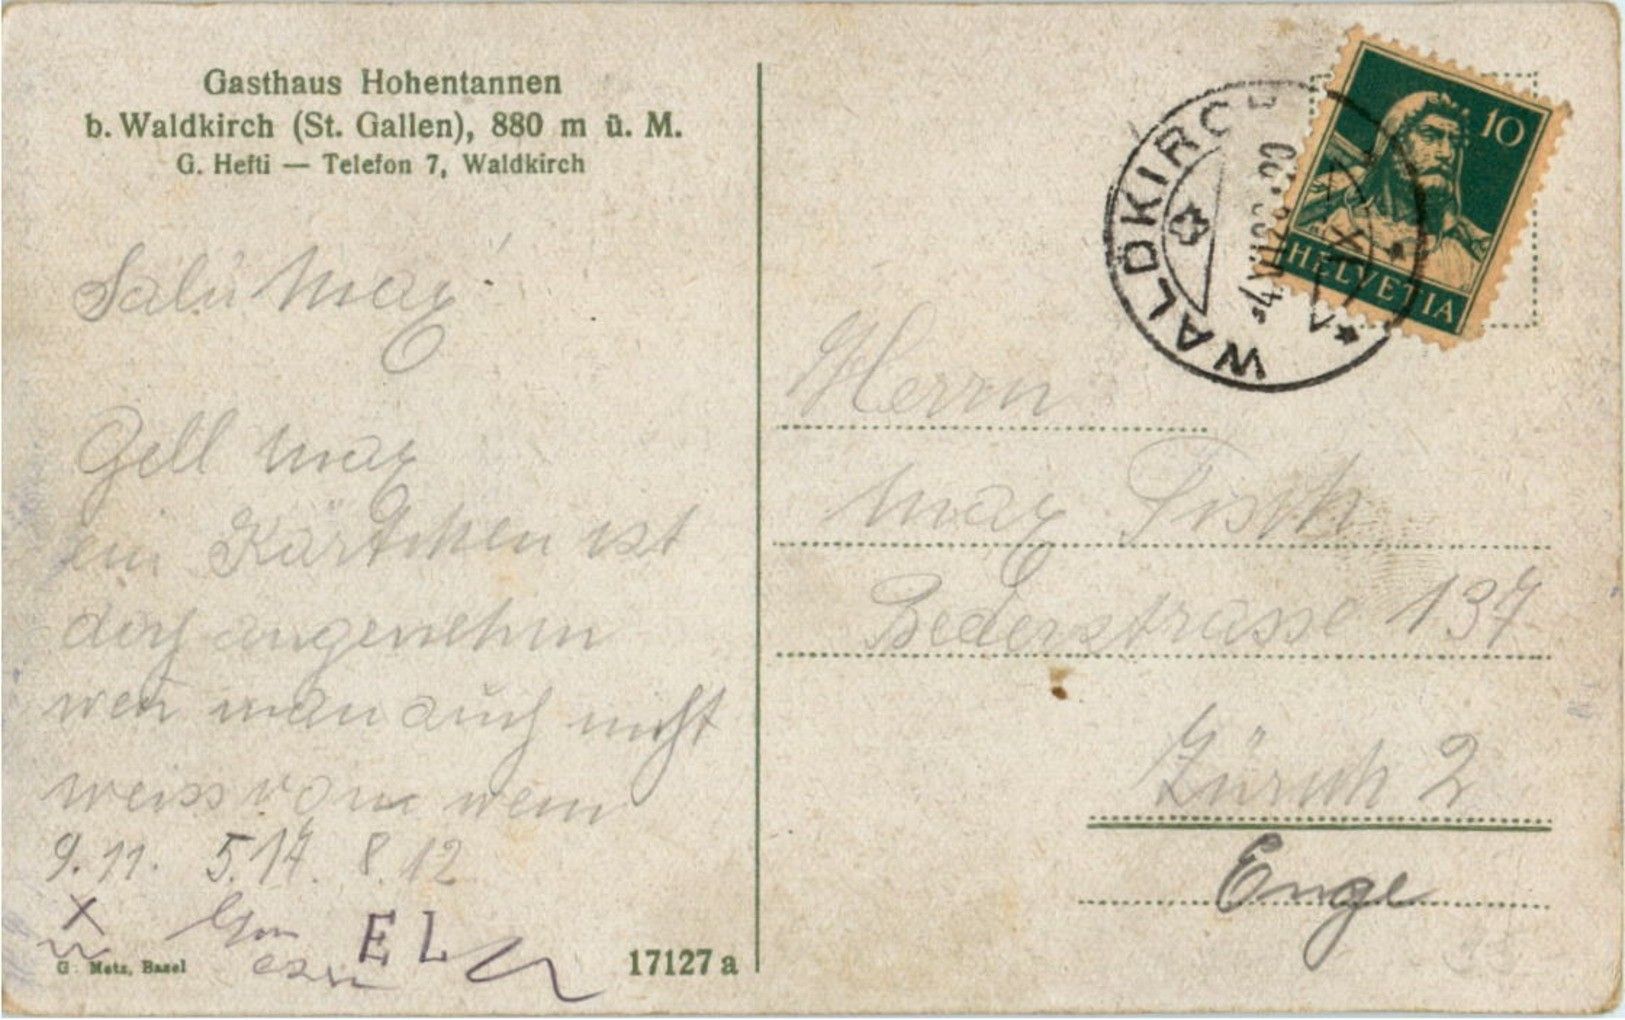 Gasthaus Hohentannen
b. Waldkirch (St. Gallen), 880 m ü. M.
G. Hefti — Telefon 7, Waldkirch
Salü Max!
Gell Max
ein Kärtchen ist
doch angenehm
wen man auch nicht
weiss vom wem
9.11. 5.17. 8.12
X
EL
G. Metz, Basel
17127 a
WALDKIRCH
HELVETIA
10
Herrn
Max Fisch
Bederstrasse 137
Zürich 2
Enge